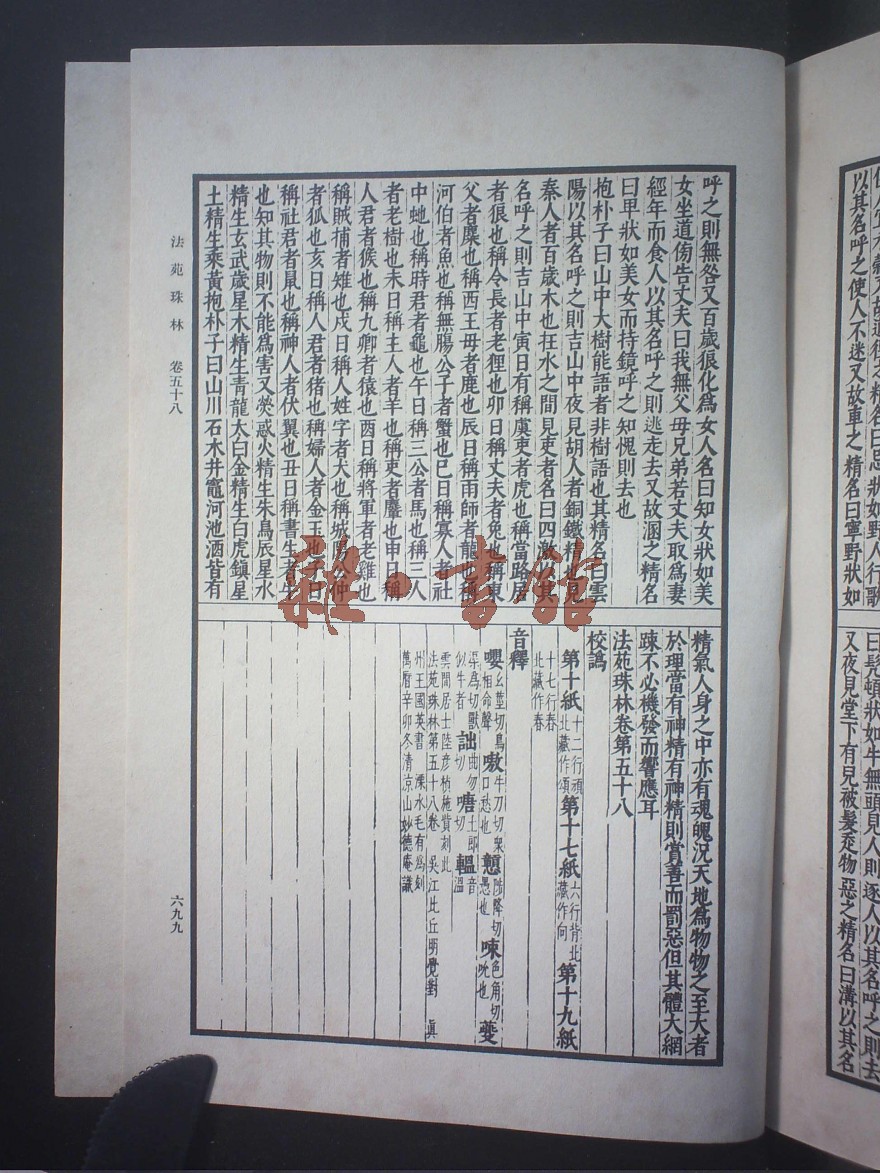 呼之則無咎又百歲狼化爲女人名曰知女狀如美
女坐道傍告丈夫曰我無父母兄弟若丈夫取爲妻
經年而食人以其名呼之則逃走去又故溷之精名
曰卑狀如美女而持鏡呼之知愧則去也
抱朴子曰山中大樹能語者非樹語也其精名曰雲
陽以其名呼之則吉山中夜見胡人者銅鐵精也見
秦人者百歲木也在水之間見吏者名曰四激以其
名呼之則吉山中寅日有稱虞吏者虎也稱當路君
者狼也稱令長者老狸也卯日稱丈夫者兔也稱東
父者麋也稱西王母者鹿也辰日稱雨師者龍也稱
河伯者魚也稱無腸公子者蟹也巳日稱寡人者社
中虵也稱時君者龜也午日稱三公者馬也稱三人
者老樹也未日稱主人者羊也稱吏者麞也申日稱
人君者猴也稱九卿者猿也酉日稱將軍者老雞也
稱賊捕者雉也戌日稱人姓字者犬也稱城陽公仲
者狐也亥日稱人君者猪也稱婦人者金玉也子日
稱社君者鼠也稱神人者伏翼也丑日稱書生者牛
也知其物則不能爲害又熒惑火精生朱鳥辰星水
精生玄武歲星木精生青龍太白金精生白虎鎮星
土精生乘黃抱朴子曰山川石木井竈河池洒皆有
精氣人身之中亦有魂魄況天地爲物物之至大者
於理當有神精有神精則賞善而罰惡但其體大網
踈不必機發而響應耳
法苑珠林卷第五十八
校譌
第十紙十二行頑北藏作頌第十七紙六行背北藏作向第十九紙
十七行春北藏作舂
音釋
嚶幺莖切鳥相命聲嗷牛刀切衆口愁也戇陟降切愚也㖩色角切吮也夔
渠爲切獸似牛者詘曲勿切嗢土卽切轀音溫
雲間居士陸彥楨施貲刻此
法苑珠林第五十八卷 吳江比丘明覺對 眞
州王國英書 溧水毛有爲刻
萬曆辛卯冬清涼山妙德庵識
法苑珠林 卷五十八
六九九
雜·書館
以其名呼之使人不迷又故車之精名曰寧野狀如
曰髡頓狀如牛無頭見人則逐人以其名呼之則去
又夜見堂下有兒被髮走物惡之精名曰溝以其名